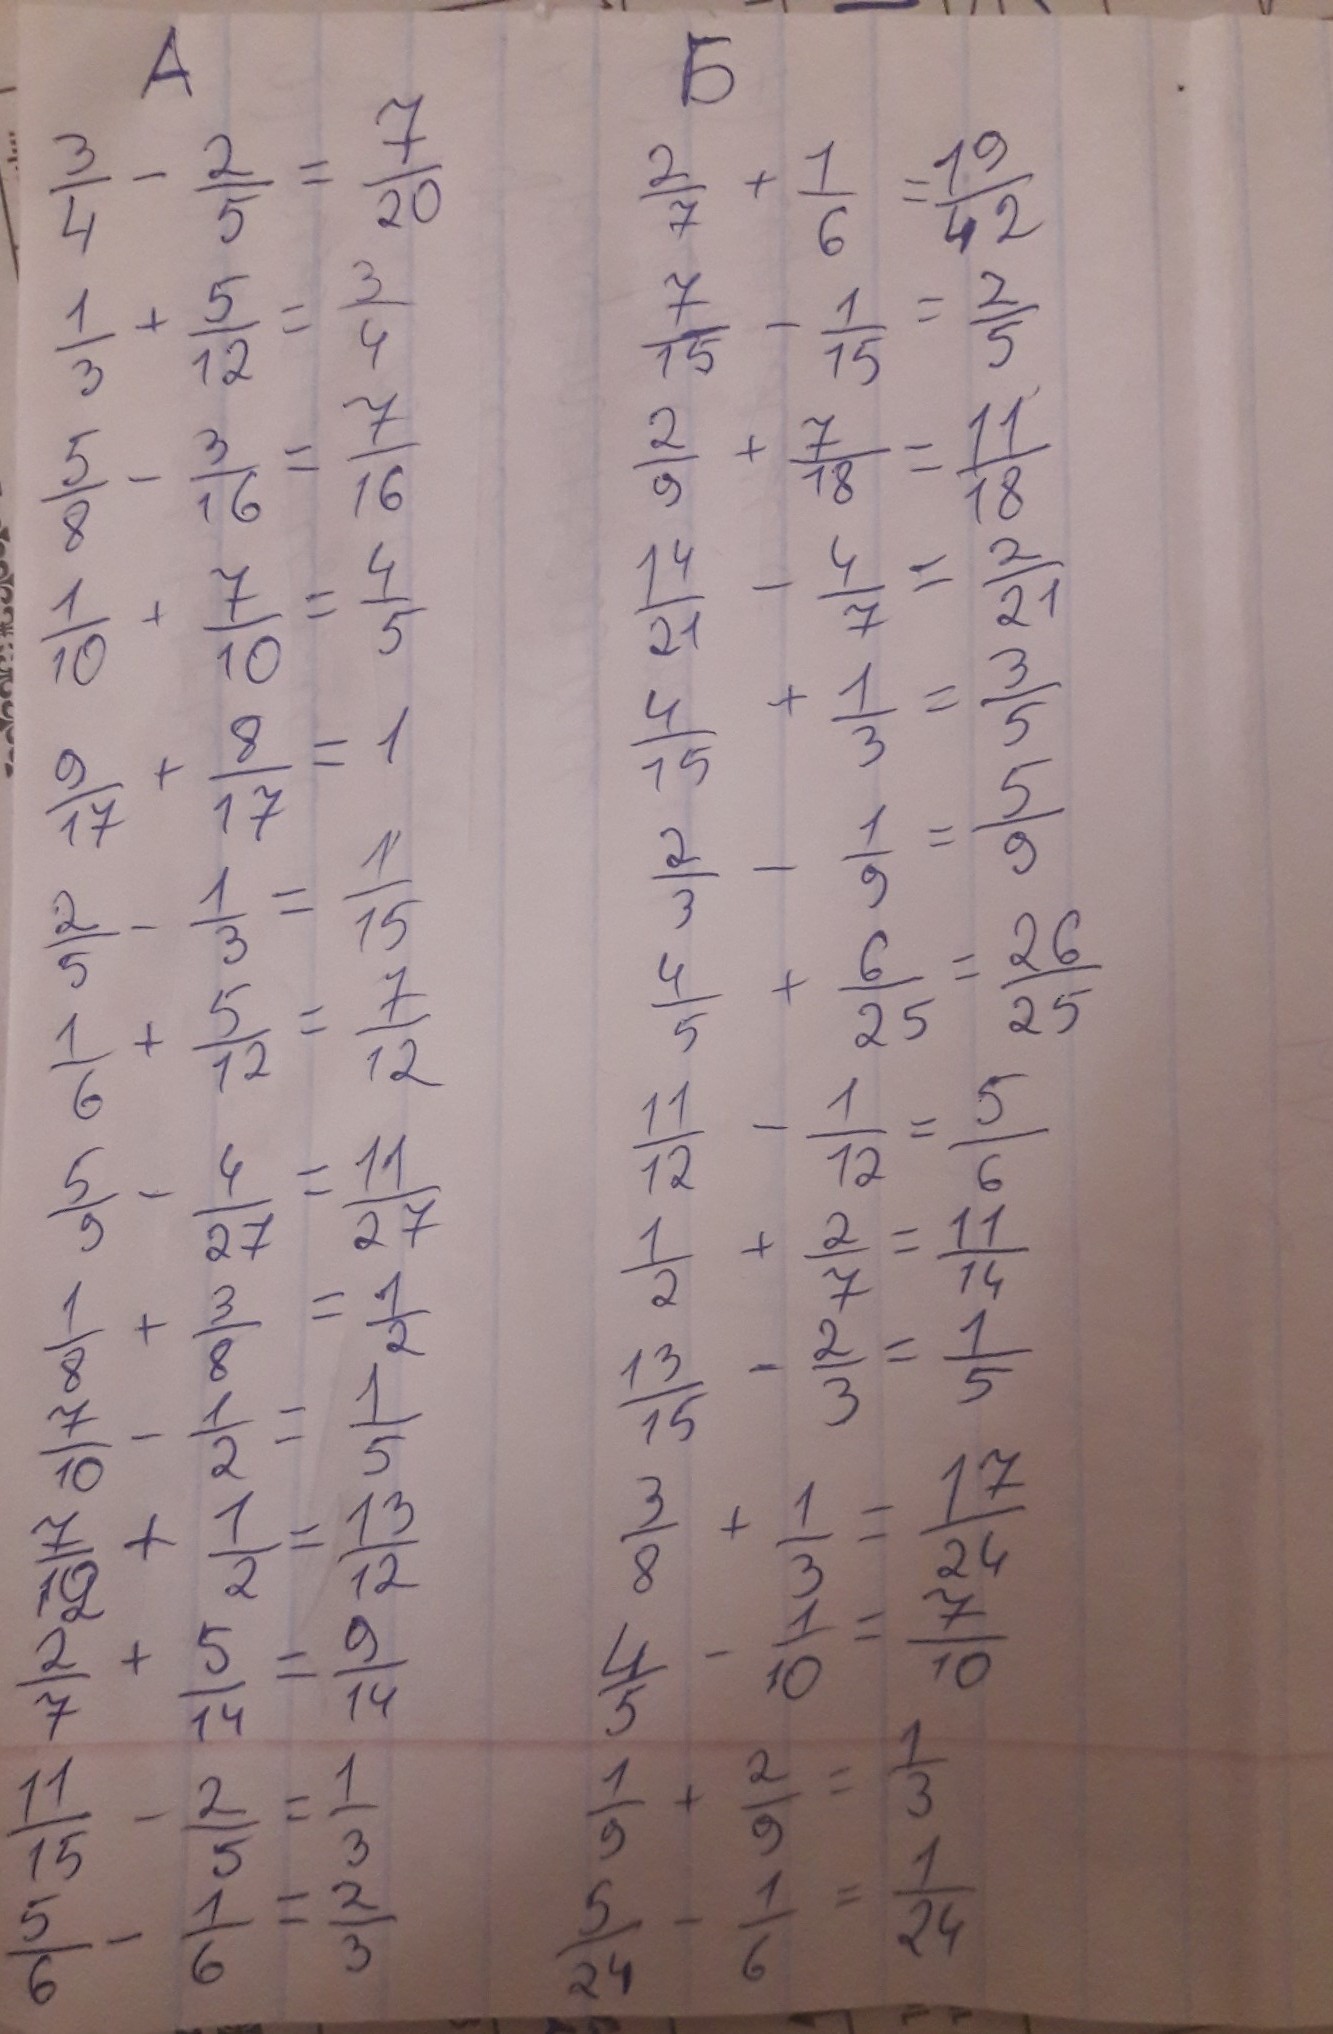 А Б
3/4 - 2/5 = 7/20
1/3 + 5/12 = 3/4
5/8 - 3/16 = 7/16
1/10 + 7/10 = 4/5
9/17 + 8/17 = 1
2/5 - 1/3 = 1/15
1/6 + 5/12 = 7/12
5/9 - 4/27 = 11/27
1/8 + 3/8 = 1/2
7/10 - 1/2 = 1/5
7/12 + 1/2 = 13/12
2/7 + 5/14 = 9/14
11/15 - 2/5 = 1/3
5/6 - 1/6 = 2/3
2/7 + 1/6 = 19/42
7/15 - 1/15 = 2/5
2/9 + 7/18 = 11/18
14/21 - 4/7 = 2/21
4/15 + 1/3 = 3/5
2/3 - 1/9 = 5/9
4/5 + 6/25 = 26/25
11/12 - 1/12 = 5/6
1/2 + 2/7 = 11/14
13/15 - 2/3 = 1/5
3/8 + 1/3 = 17/24
4/5 - 1/10 = 7/10
1/9 + 2/9 = 1/3
5/24 - 1/6 = 1/24